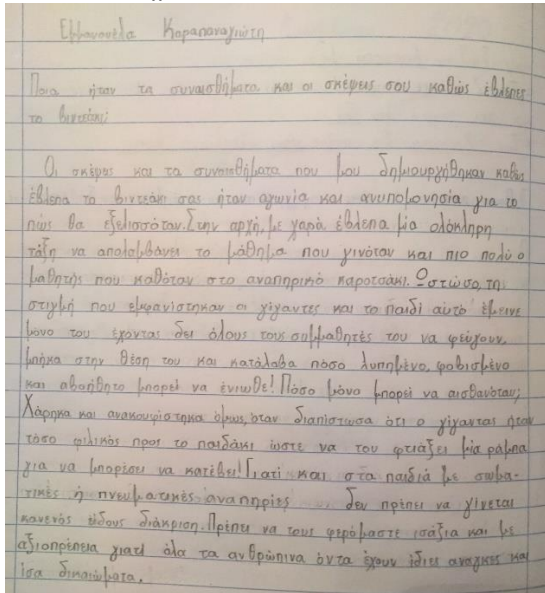 Εμμανουέλα Καραπαναγιώτη
Ποια ήταν τα συναισθήματα και οι σκέψεις σου καθώς έβλεπες
το βιντεάκι;
Οι σκέψεις και τα συναισθήματα που μου δημιουργήθηκαν καθώς
έβλεπα το βιντεάκι σας ήταν αγωνία και ανυπομονησία για το
πώς θα εξελισσόταν. Στην αρχή, με χαρά έβλεπα μία ολόκληρη
τάξη να απολαμβάνει το μάθημα που γινόταν και πιο πολύ ο
μαθητής που καθόταν στο αναπηρικό καροτσάκι. Ωστόσο, τη
στιγμή που εμφανίστηκαν οι γίγαντες και το παιδί αυτό έμεινε
μόνο του έχοντας δει όλους τους συμμαθητές του να φεύγουν,
μπήκα στην θέση του και κατάλαβα πόσο λυπημένο, φοβισμένο
και αβοήθητο μπορεί να ένιωθε! Πόσο μόνο μπορεί να αισθανόταν;
Χάρηκα και ανακουφίστηκα όμως, όταν διαπίστωσα ότι ο γίγαντας ήταν
τόσο φιλικός προς το παιδάκι ώστε να του φτιάξει μία ράμπα
για να μπορέσει να κατέβει! Γιατί και στα παιδιά με σωμα-
τικές ή πνευματικές αναπηρίες δεν πρέπει να γίνεται
κανενός είδους διάκριση. Πρέπει να τους φερόμαστε ισάξια και με
αξιοπρέπεια γιατί όλα τα ανθρώπινα όντα έχουν ίδιες ανάγκες και
ίσα δικαιώματα.